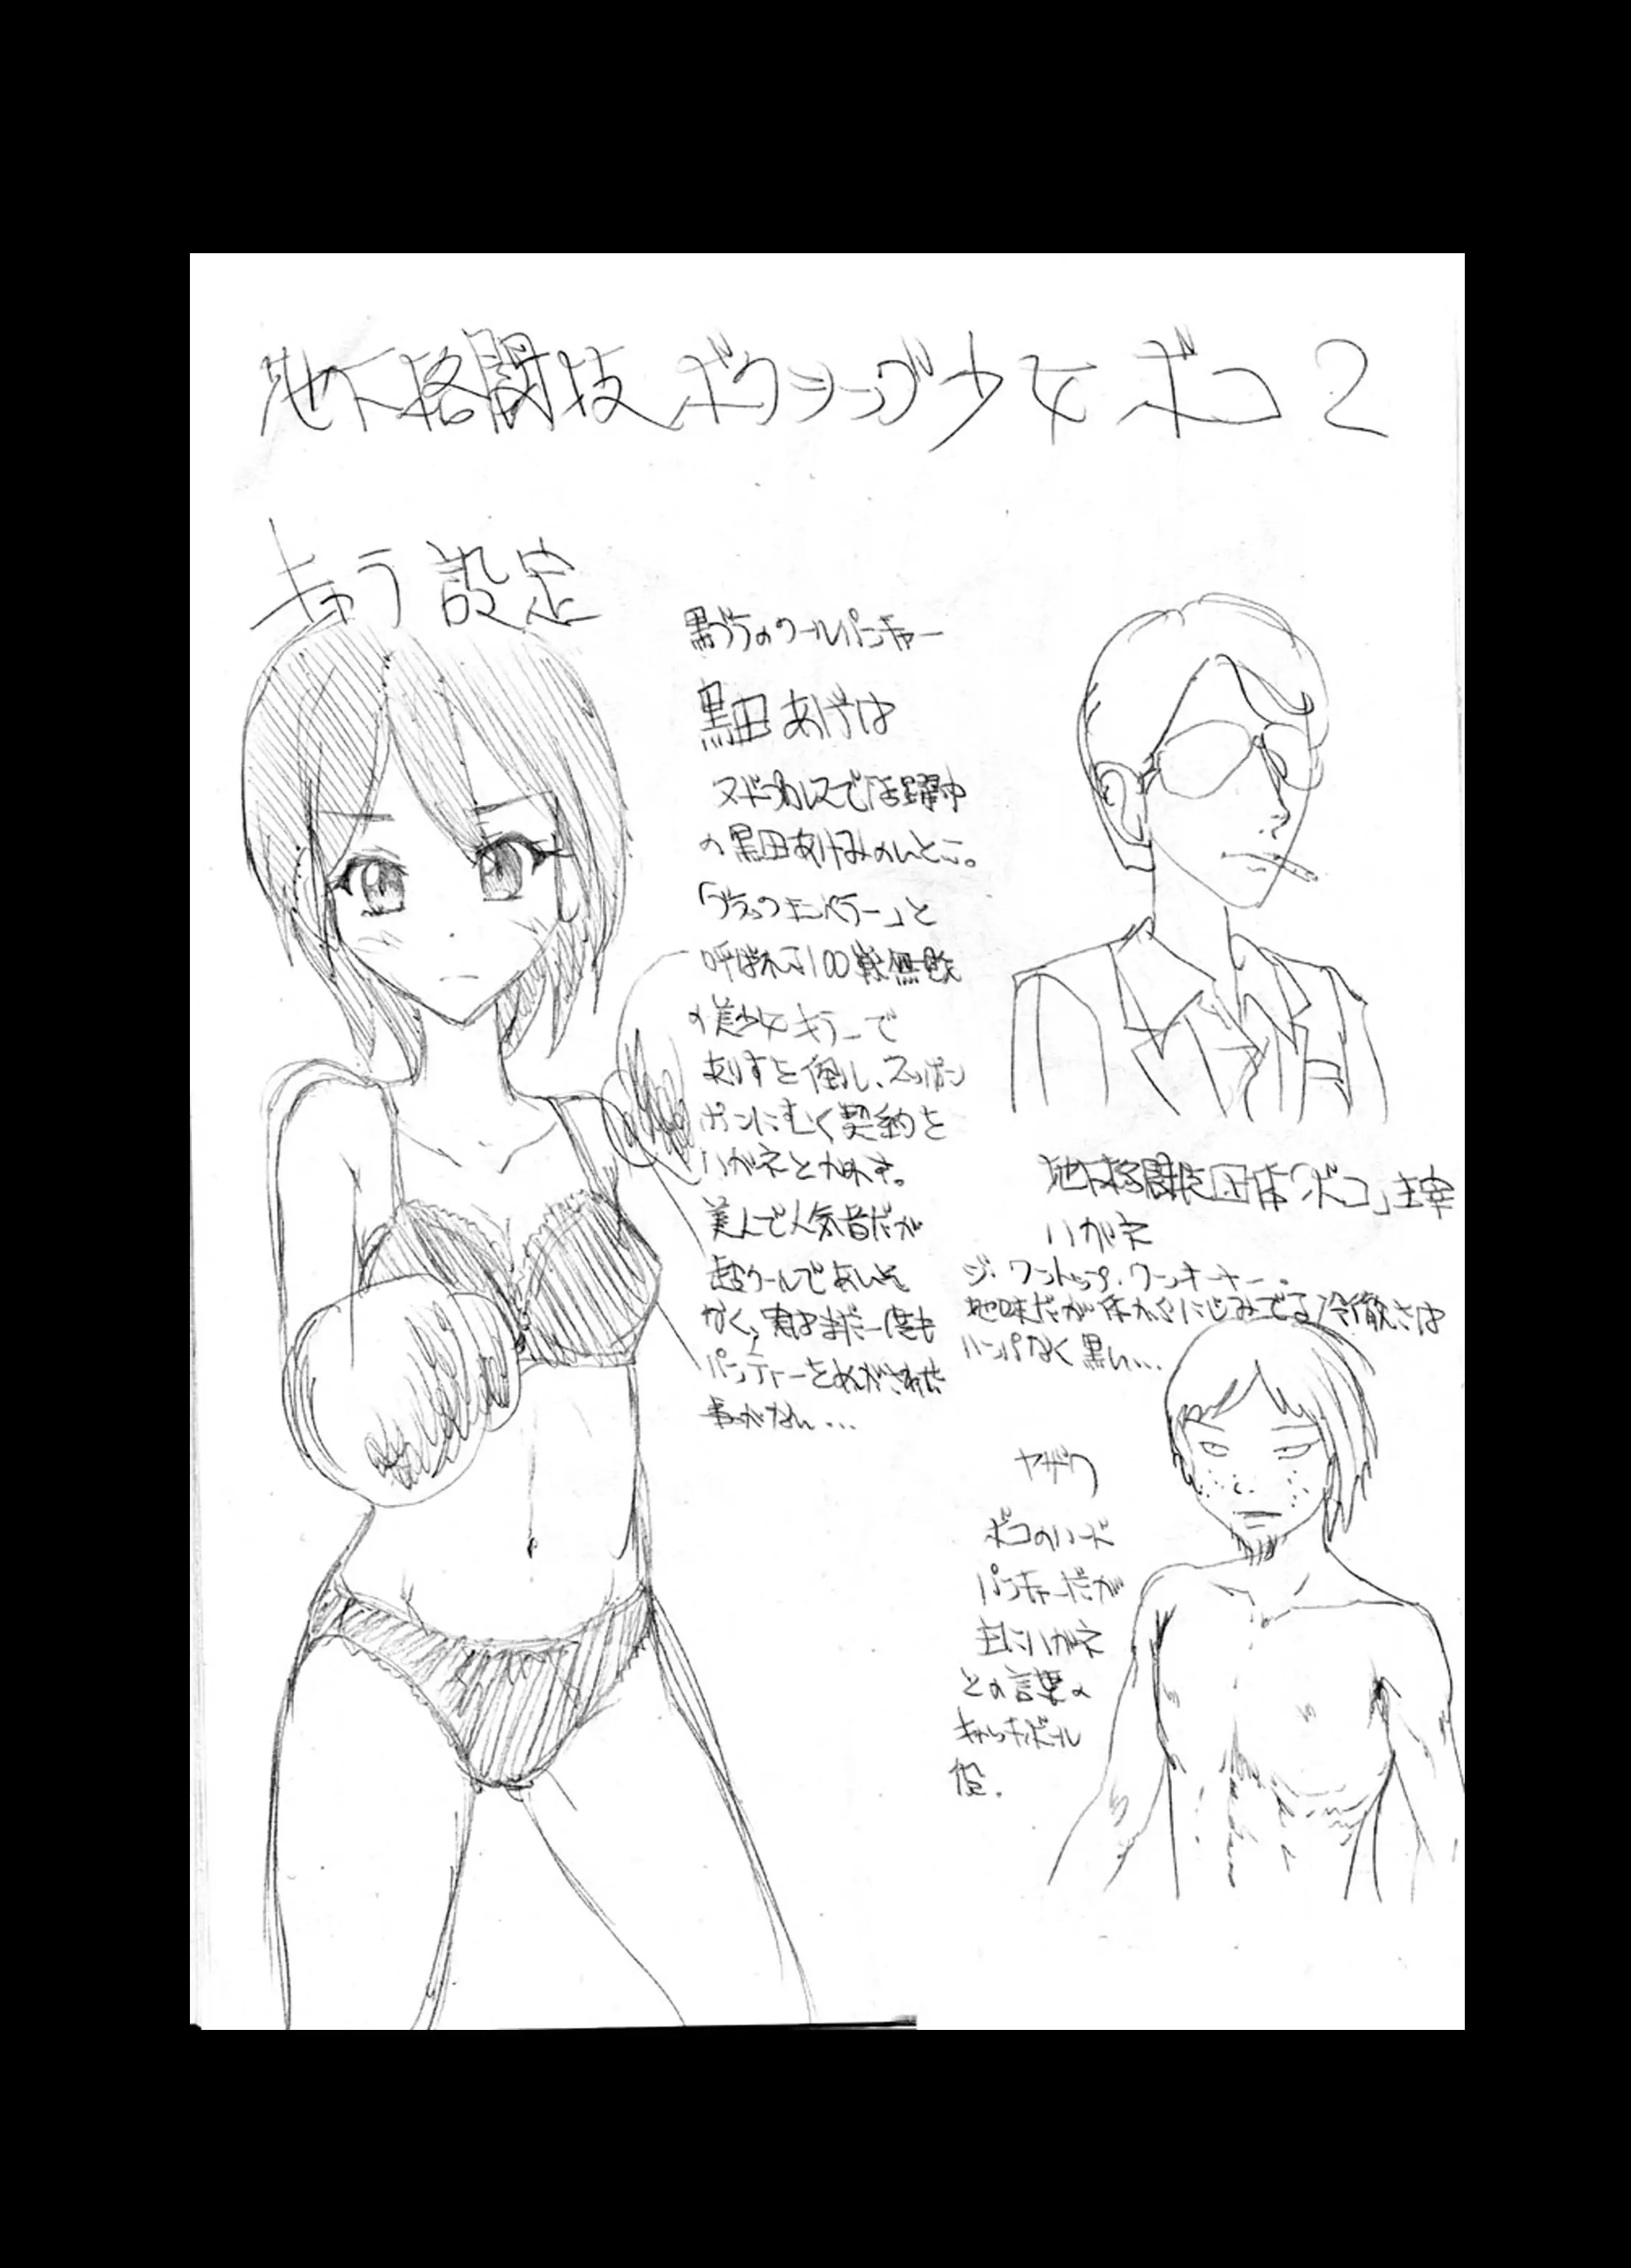 地下格闘技ボクシング少女ボコ2
きゃう設定
黒ブラのクールパンチャー
黒田あげは
ヌードプロレスで活躍中
の黒田あけみのいとこ。
「ブラックエンペラー」と
呼ばれる100戦無敗
の美少女キラーで
ありすを倒し、スッポン
ポンにむく契約を
ハガネとかわす。
美人で人気者だが
超クールであいそ
なく、実はまだ一度も
パンティーをぬがされた
事がない…
地下格闘技団体「ボコ」主宰
ハガネ
ジ・ワントップ・ワンオーナー。
地味だが体からにじみでる冷徹さは
ハンパなく黒い…
ヤザワ
ボコのハード
パンチャーだが
主にハガネ
との言葉の
キャッチボール
役.